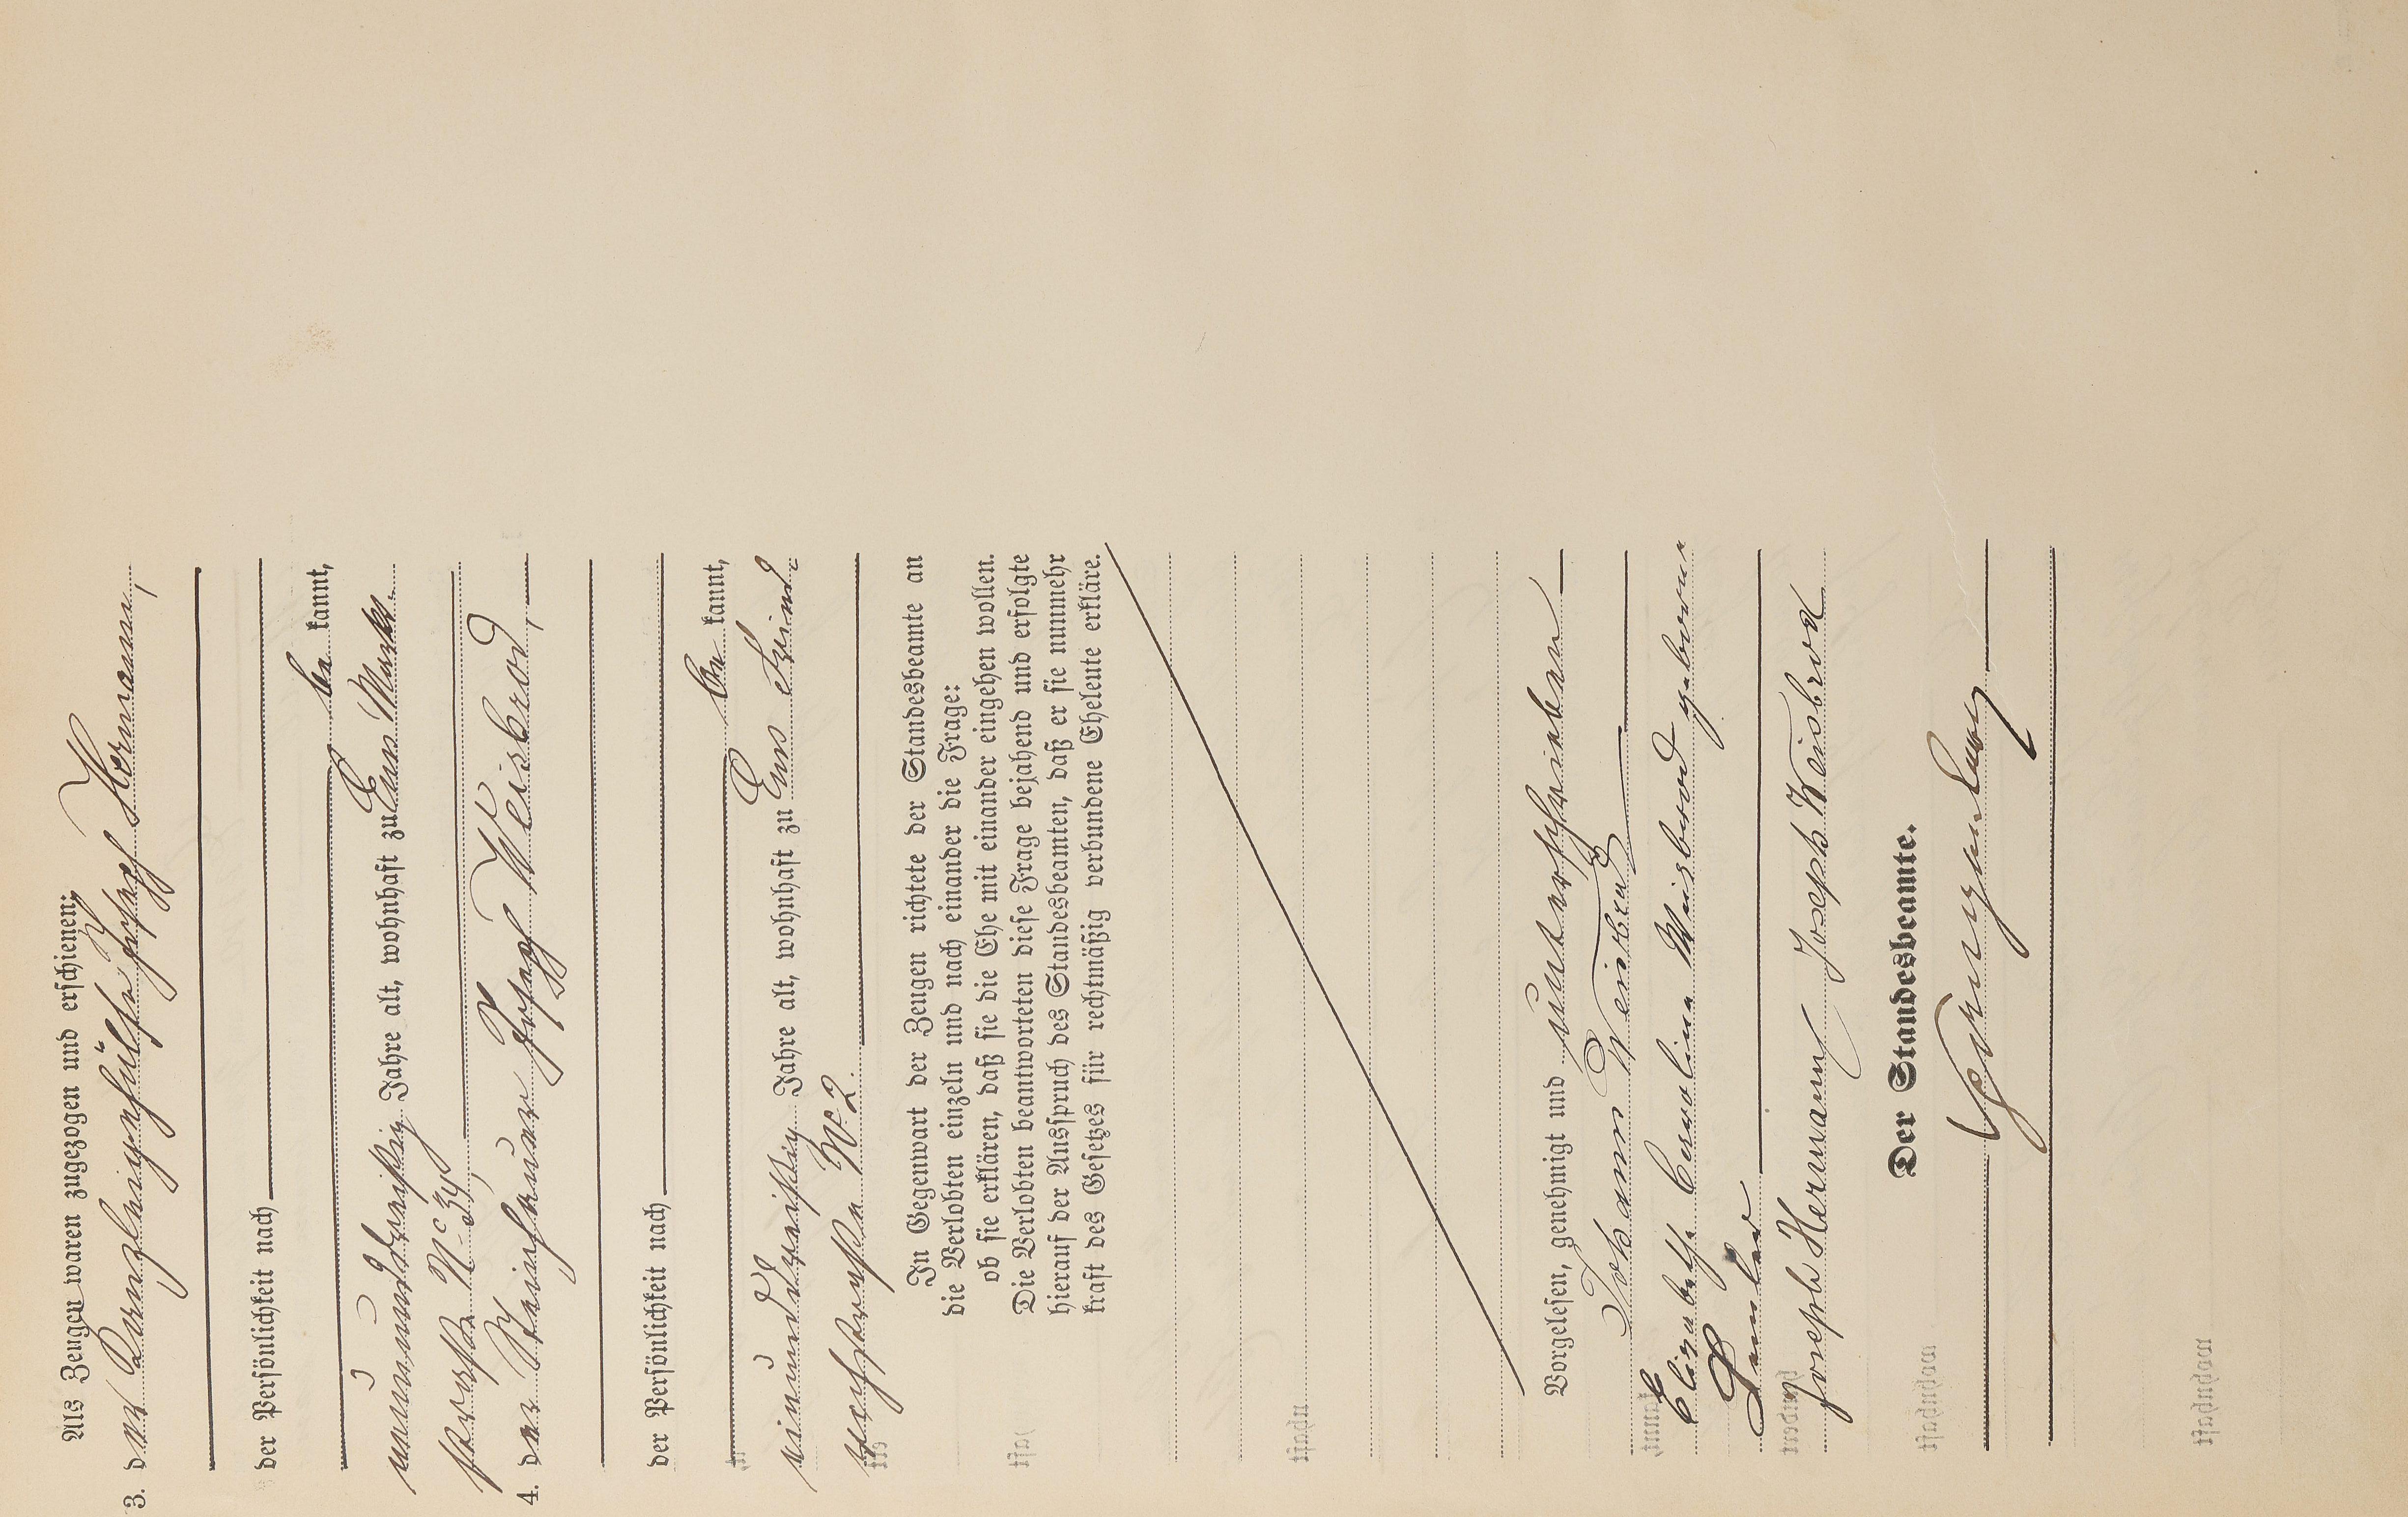 Als Zeugen waren zugezogen und erschienen:
3. der Kanzleigehülfe Joseph Hermann,
der Persönlichkeit nach
bekannt,
neununddreißig Jahre alt, wohnhaft zu Ems Markt-
straße No 34,
4. der Steinhauer Joseph Weisbrod,
der Persönlichkeit nach
bekannt,
einunddreißig Jahre alt, wohnhaft zu Ems
straße No 2.
In Gegenwart der Zeugen richtete der Standesbeamte an
die Verlobten einzeln und nach einander die Frage:
ob sie erklären, daß sie die Ehe mit einander eingehen wollen.
Die Verlobten beantworteten diese Frage bejahend und erfolgte
hierauf der Ausspruch des Standesbeamten, daß er sie nunmehr
kraft des Gesetzes für rechtmäßig verbundene Eheleute erkläre.
Vorgelesen, genehmigt und unterschrieben
Johann Weisbrod
Elisabethe Carolina Weisbrod geborene
Joseph Hermann Joseph Weisbrod
Der Standesbeamte.